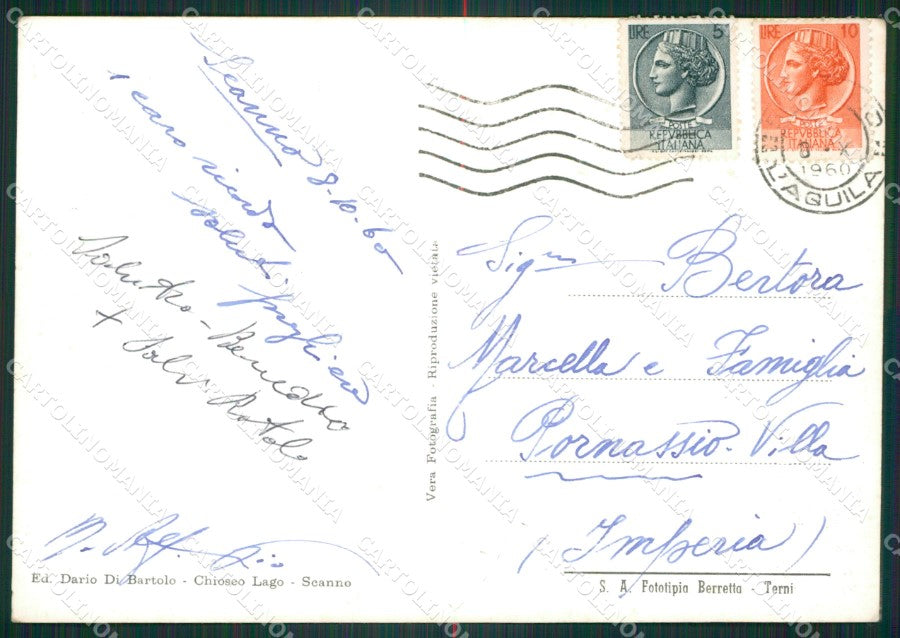 Scanno 8-10-60
1 caro ricordo
saluti
Saluto - Benedico
+
Ed. Dario Di Bartolo - Chiosco Lago - Scanno
Vera Fotografia - Riproduzione vietata
LIRE 5
POSTE
REPVBBLICA
ITALIANA
LIRE 10
POSTE
REPVBBLICA
ITALIANA
1960
L'AQUILA
Sig.na Bertora
Marcella e Famiglia
Pornassio - Villa
(Imperia)
S. A. Fototipia Berretta - Terni
CARTOLINOMANIA